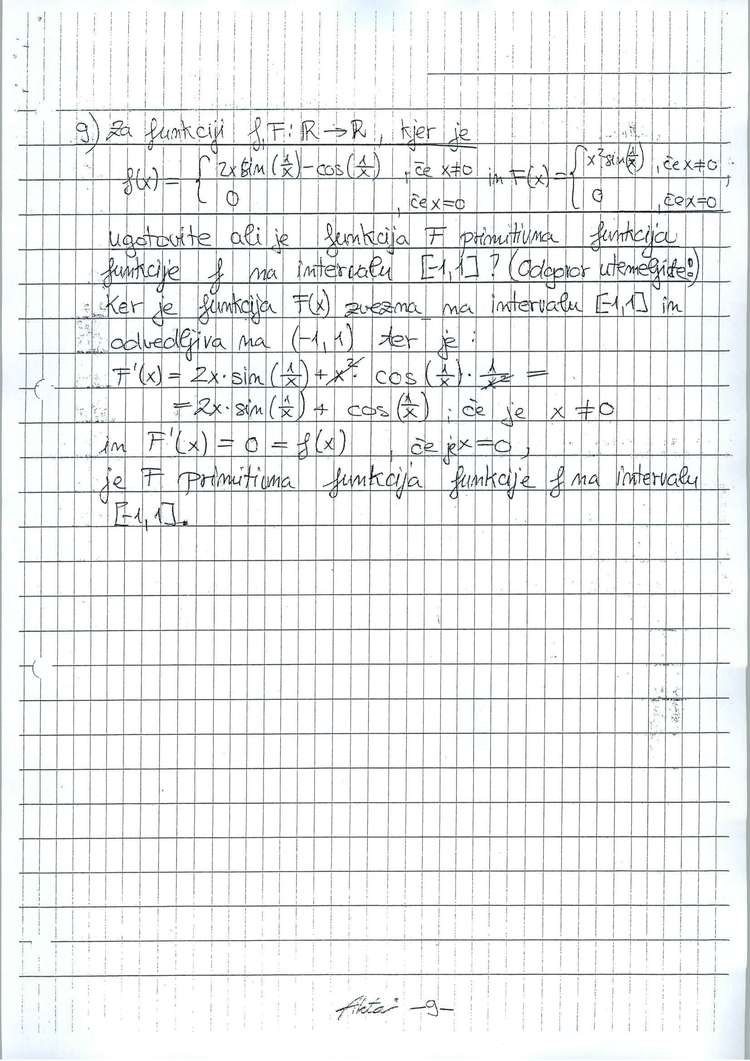 9.) Za funkciji f,F: ℝ→ℝ, kjer je
f(x) = { 2x sin(1/x) - cos(1/x) , če x≠0 ; 0 , če x=0 in F(x) = { x² sin(1/x) , če x≠0 ; 0 , če x=0 ,
ugotovite ali je funkcija F primitivna funkcija
funkcije f na intervalu [-1,1]? (Odgovor utemeljite!)
Ker je funkcija F(x) zvezna na intervalu [-1,1] in
odvedljiva na (-1,1) ter je:
F'(x) = 2x·sin(1/x) + x²· cos(1/x)· 1/x² =
= 2x·sin(1/x) + cos(1/x) ; če je x ≠0
in F'(x) = 0 = f(x) , če je x=0,
je F primitivna funkcija funkcije f na intervalu
[-1,1].
-9-